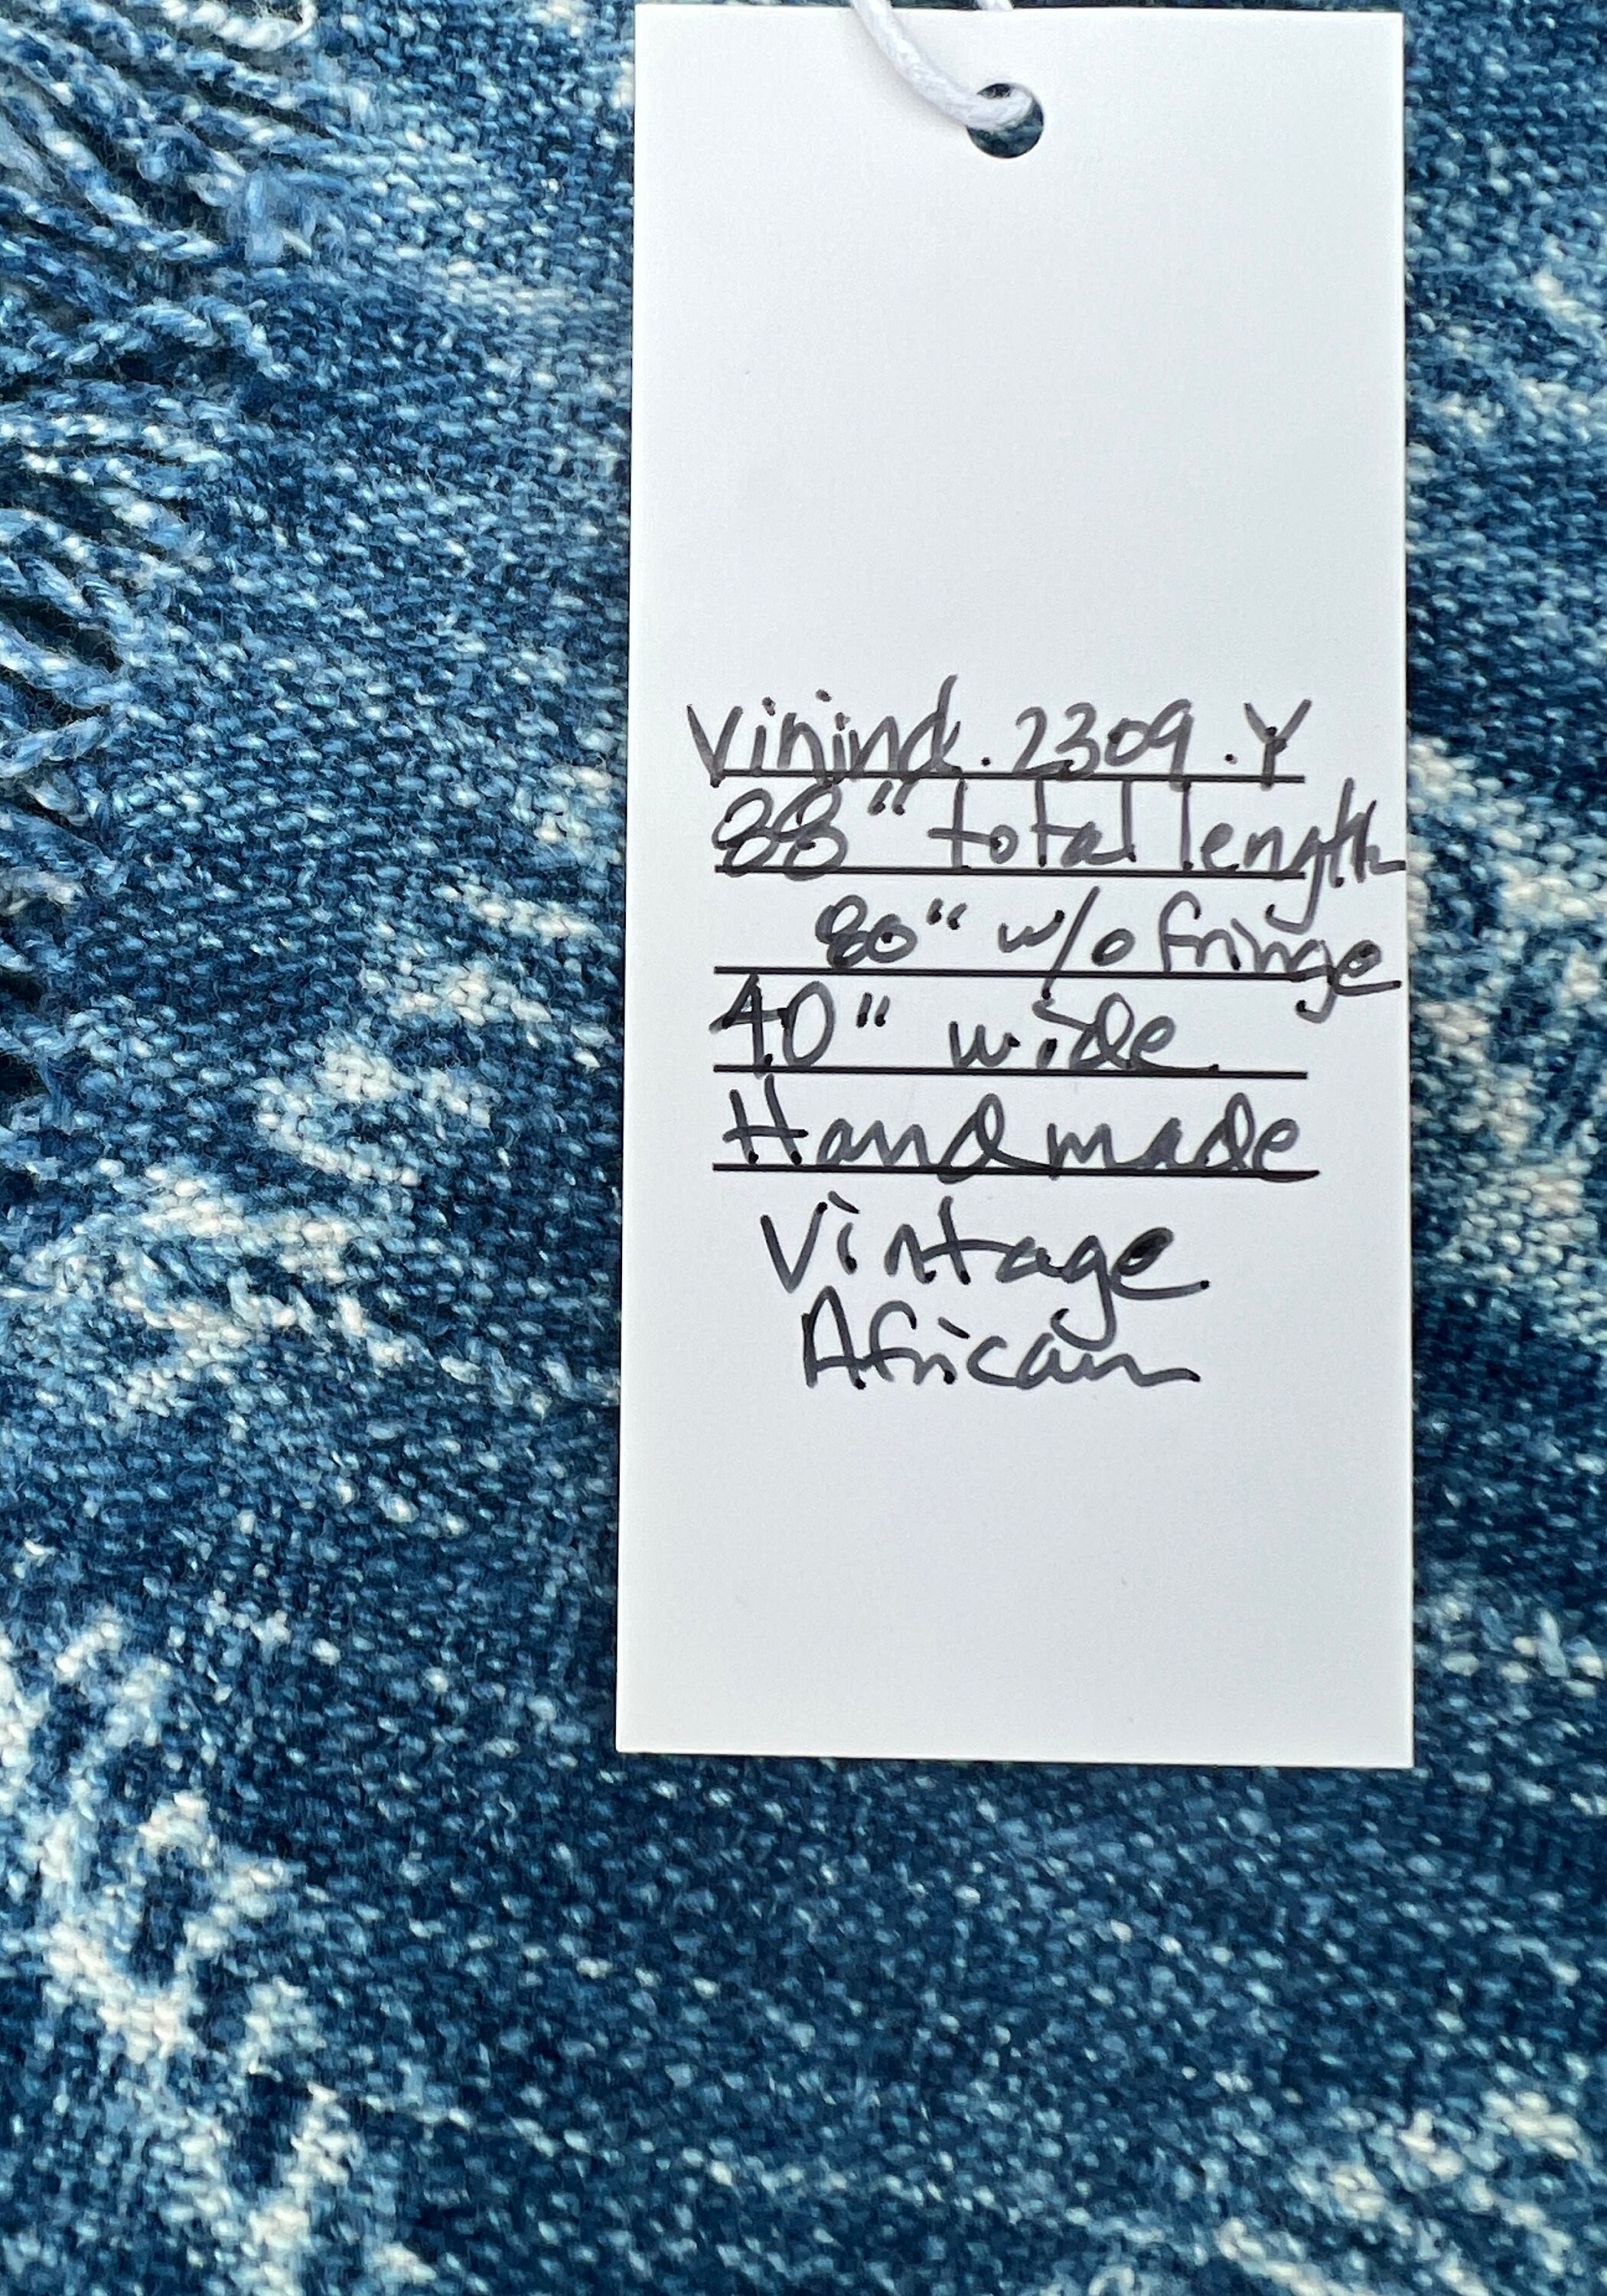 Vinind.2309.Y
88" total length
80" w/o fringe
40" wide
Handmade
Vintage
African